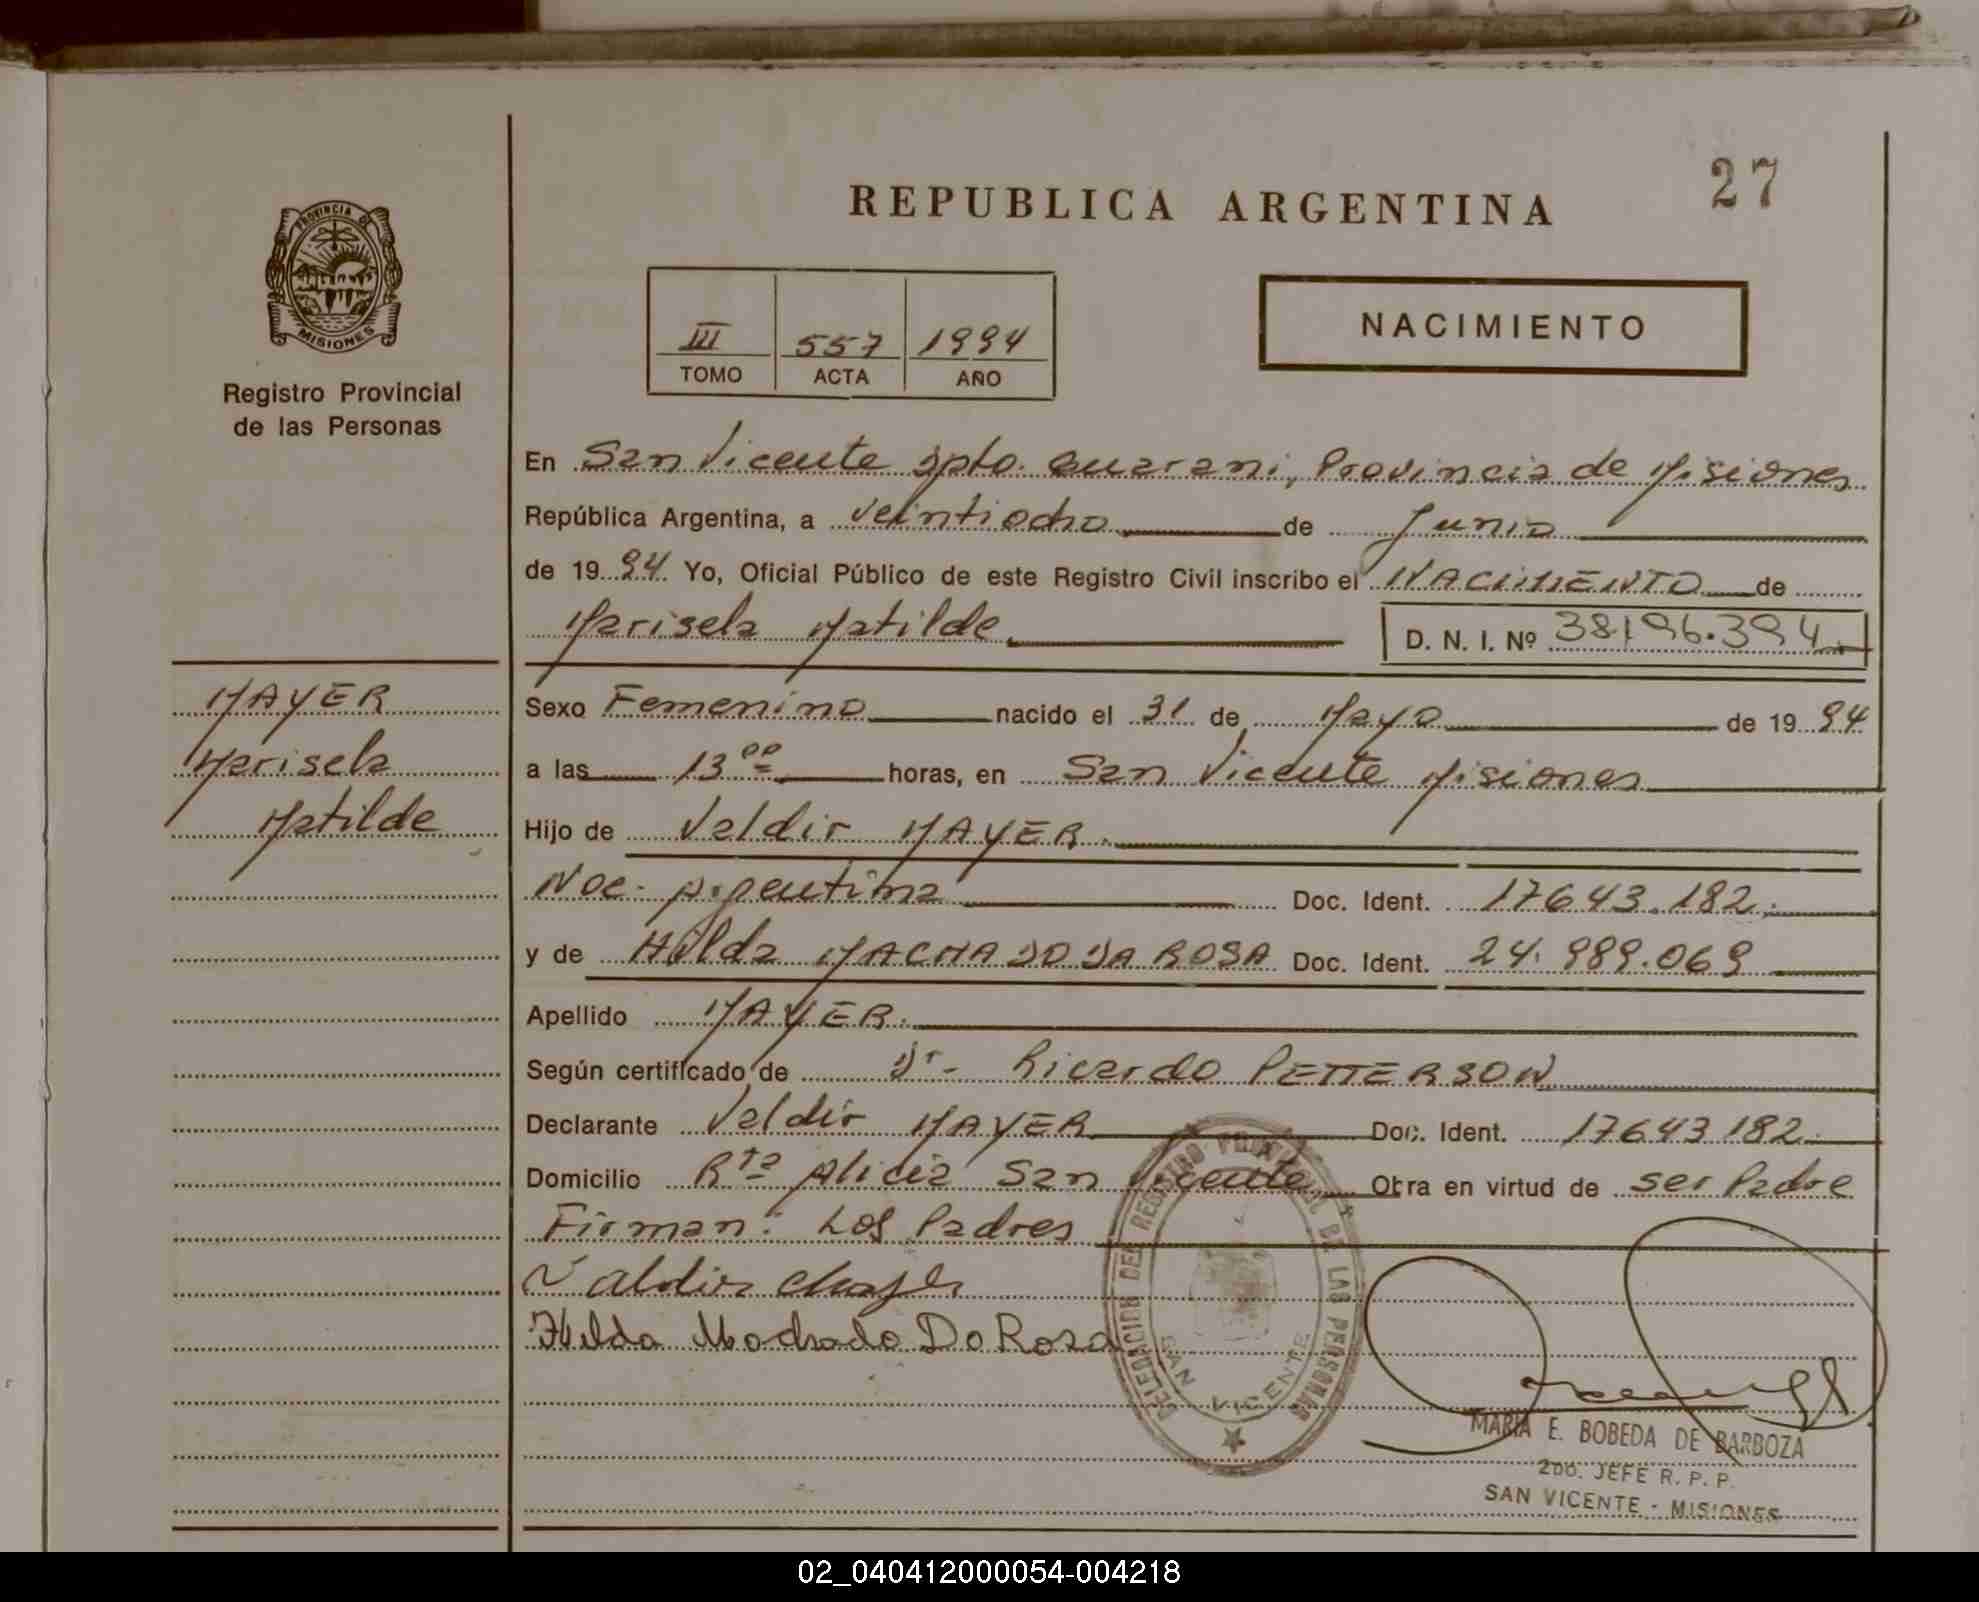 27
REPUBLICA ARGENTINA
PROVINCIA DE
MISIONES
Registro Provincial
de las Personas
III 557 1994
TOMO ACTA AÑO
NACIMIENTO
En San Vicente Dpto. Guarani, Provincia de Misiones
República Argentina, a veintiocho de Junio
de 1994 Yo, Oficial Público de este Registro Civil inscribo el NACIMIENTO de
Marisela Matilde D. N. I. Nº 38196.394
MAYER
Marisela
Matilde
Sexo Femenino nacido el 31 de Mayo de 1994
a las 13 00 horas, en San Vicente Misiones
Hijo de Valdir MAYER.
Nac. Argentina Doc. Ident. 17643.182.
y de Hilda MACHADO DA ROSA Doc. Ident. 24.989.069
Apellido MAYER.
Según certificado de Dr. Ricardo PETTERSON
Declarante Valdir MAYER Doc. Ident. 17643182.
Domicilio Rta Alicia San Vicente Otra en virtud de ser Padre
Firman: Los Padres
Valdir
Hilda Machado Da Rosa
DELEGACION DEL REGISTRO PROVINCIAL DE LAS PERSONAS
SAN VICENTE
MARIA E. BOBEDA DE BARBOZA
2DO. JEFE R. P. P.
SAN VICENTE - MISIONES
02_040412000054-004218